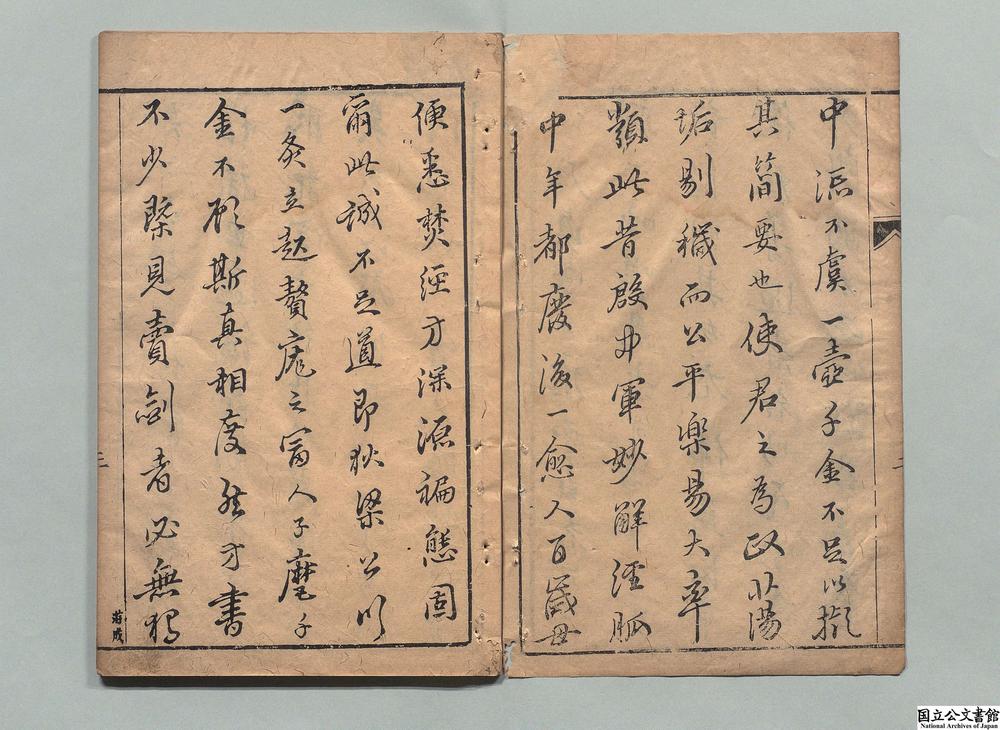 中流不虞一壺千金不足以擬
其簡要也使君之為政北陽
垢剔穢而公平樂易大率
類此昔殷中軍妙解經脈
中年都廢後一愈人百歲母
便悉焚經方深源褊態固
爾此誠不足道即狄梁公以
一灸立起贅疣之富人子麾千
金不顧斯真相度然方書
不少槩見賣劍者必無犢
二
二
荊成
国立公文書館
National Archives of Japan